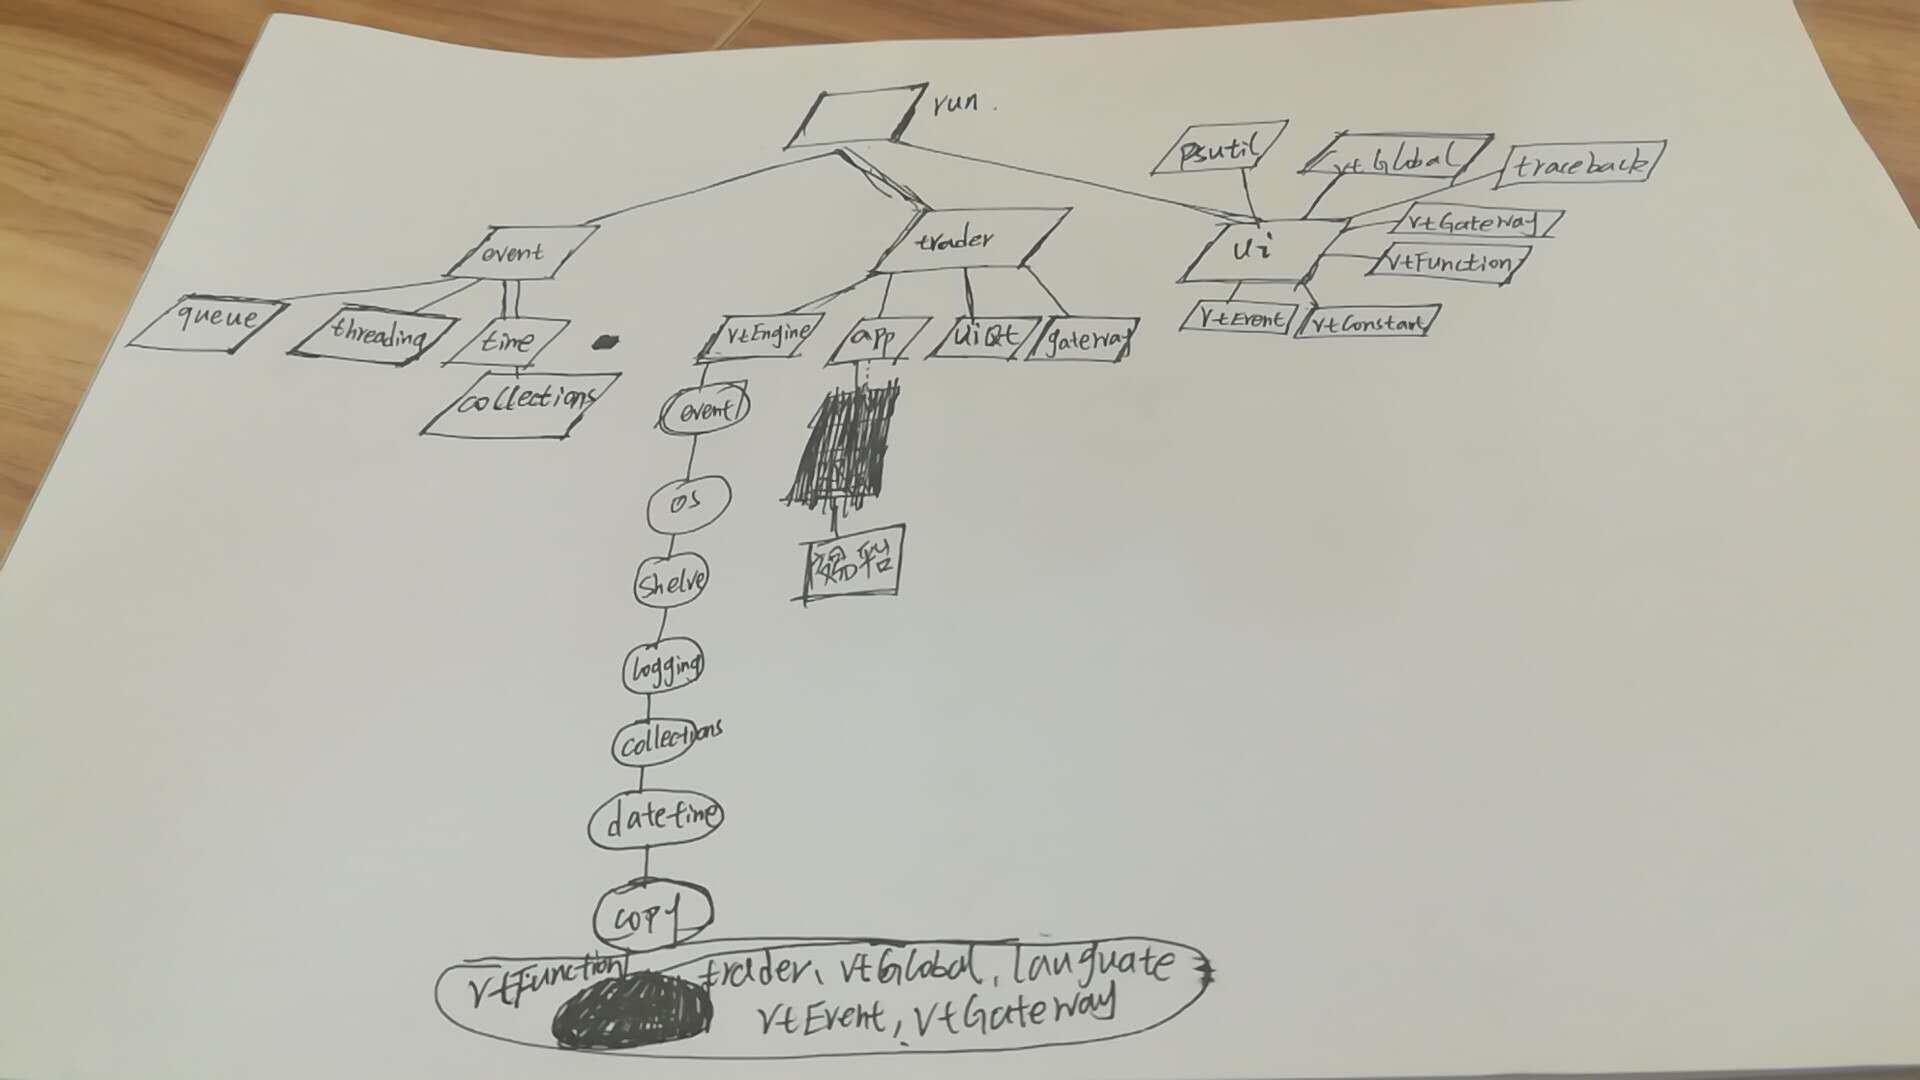 run.
psutil
vtGlobal
traceback
event
trader
ui
vtGateway
vtFunction
queue
threading
time
vtEngine
app
uiQt
gateway
vtEvent
vtConstant
collections
event
os
shelve
logging
collections
datetime
copy
vtFunction trader、vtGlobal, languate
vtEvent, vtGateway